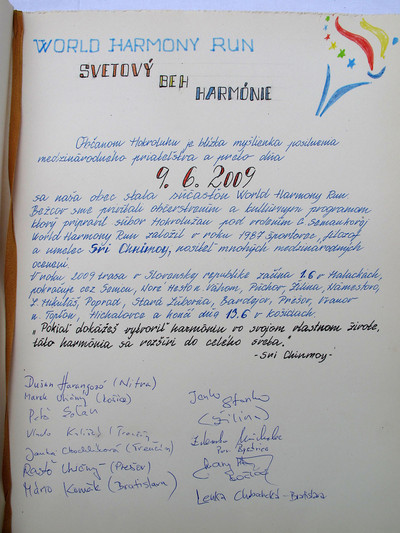 WORLD HARMONY RUN
SVETOVÝ
BEH
HARMÓNIE
Občanom Hokroluhu je blízka myšlienka posilnenia
medzinárodného priateľstva a preto dňa
9. 6. 2009
sa naša obec stala súčasťou World Harmony Run
Bežcov sme privítali občerstvením a kultúrnym programom
ktorý pripravil súbor Hokrolužan pod vedením
World Harmony Run založil v roku 1987 športovec, filozof
a umelec Sri Chinmoy, nositeľ mnohých medzinárodných
ocenení.
V roku 2009 trasa v Slovenskej republike začína 1.6 v Malackách,
pokračuje cez Semcu, Nové Mesto n. Váhom, Púchov, Žilina, Námestovo,
L. Mikuláš, Poprad, Stará Ľubovňa, Bardejov, Prešov, Vranov
n. Topľou, Michalovce a končí dňa 13.6 v Košiciach.
„Pokiaľ dokážeš vytvoriť harmóniu vo svojom vlastnom živote,
táto harmónia sa rozšíri do celého sveta."
- Sri Chinmoy -
Dušan (Nitra)
Marek (Košice)
(Trenčín)
Janka (Trenčín)
Rasťo (Prešov)
Mário (Bratislava)
Janko
(Žilina)
Pov. Bystrica
Lenka - Bratislava